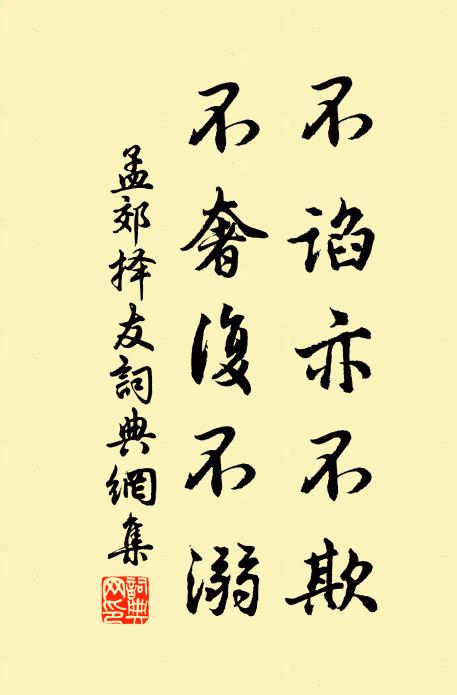 不谄亦不欺
不奢復不溺
孟郊择友詞典網集
詞典网印